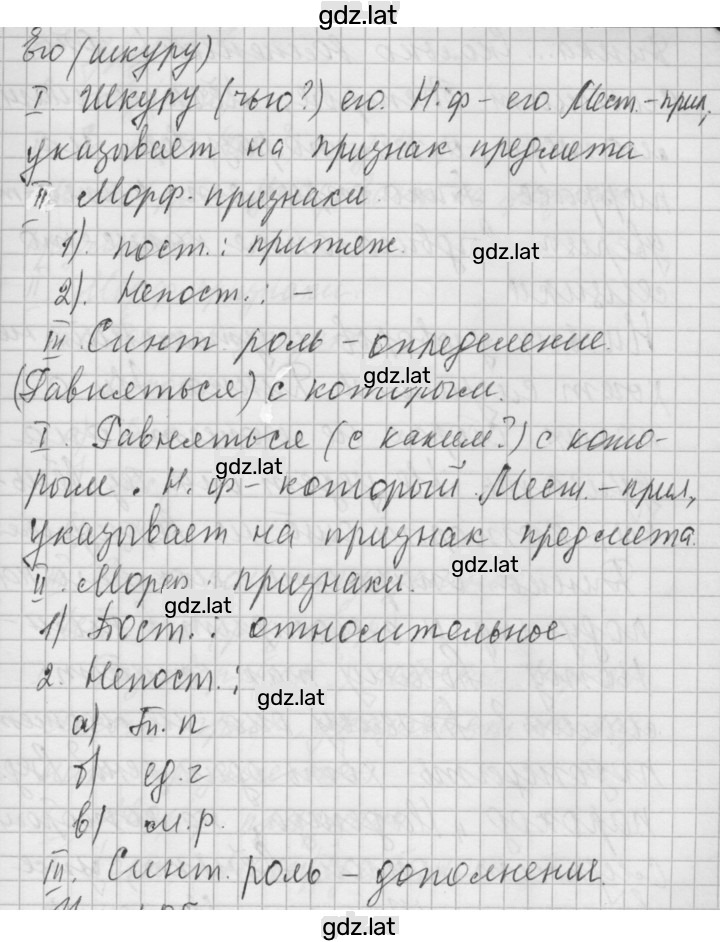 gdz.lat
Его (шкуру)
I Шкуру (чью?) его. Н.ф – его. Мест.-прил,
указывает на признак предмета
II. Морф. признаки.
1). пост.: притяж.
gdz.lat
2). Непост.: –
III. Синт. роль – определение.
gdz.lat
(Равняться) с которым.
I. Равняться (с каким?) с кото-
gdz.lat
рым. Н.ф – который. Мест.-прил,
указывает на признак предмета.
gdz.lat
II. Морф. признаки.
gdz.lat
1) Пост.: относительное
2. Непост.:
gdz.lat
а) Тп. п
б) ед. ч
в) м.р.
III. Синт. роль – дополнение.
gdz.lat